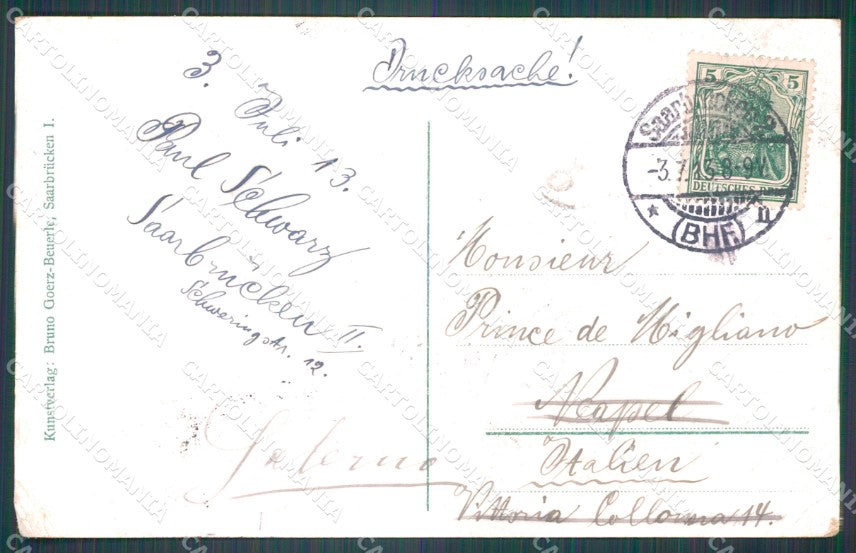 Drucksache!
3. Juli 13.
Paul Schwarz
Saarbrücken II.
Schweringstr. 12.
Salerno
Kunstverlag: Bruno Goerz-Beuerle, Saarbrücken I.
5 5
DEUTSCHES REICH
Saarbrücken
-3.7.13.8-9V.
* (BHF.) II
Monsieur
Prince de Migliano
Neapel
Italien
Vittoria Collonna 14.
CARTOLINOMANIA